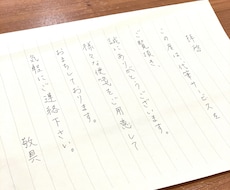 拝啓
この度は代筆サービスを
ご覧頂き、
誠にありがとうございます。
様々な便箋をご用意して
おまちしております。
気軽にご連絡下さい。
敬具